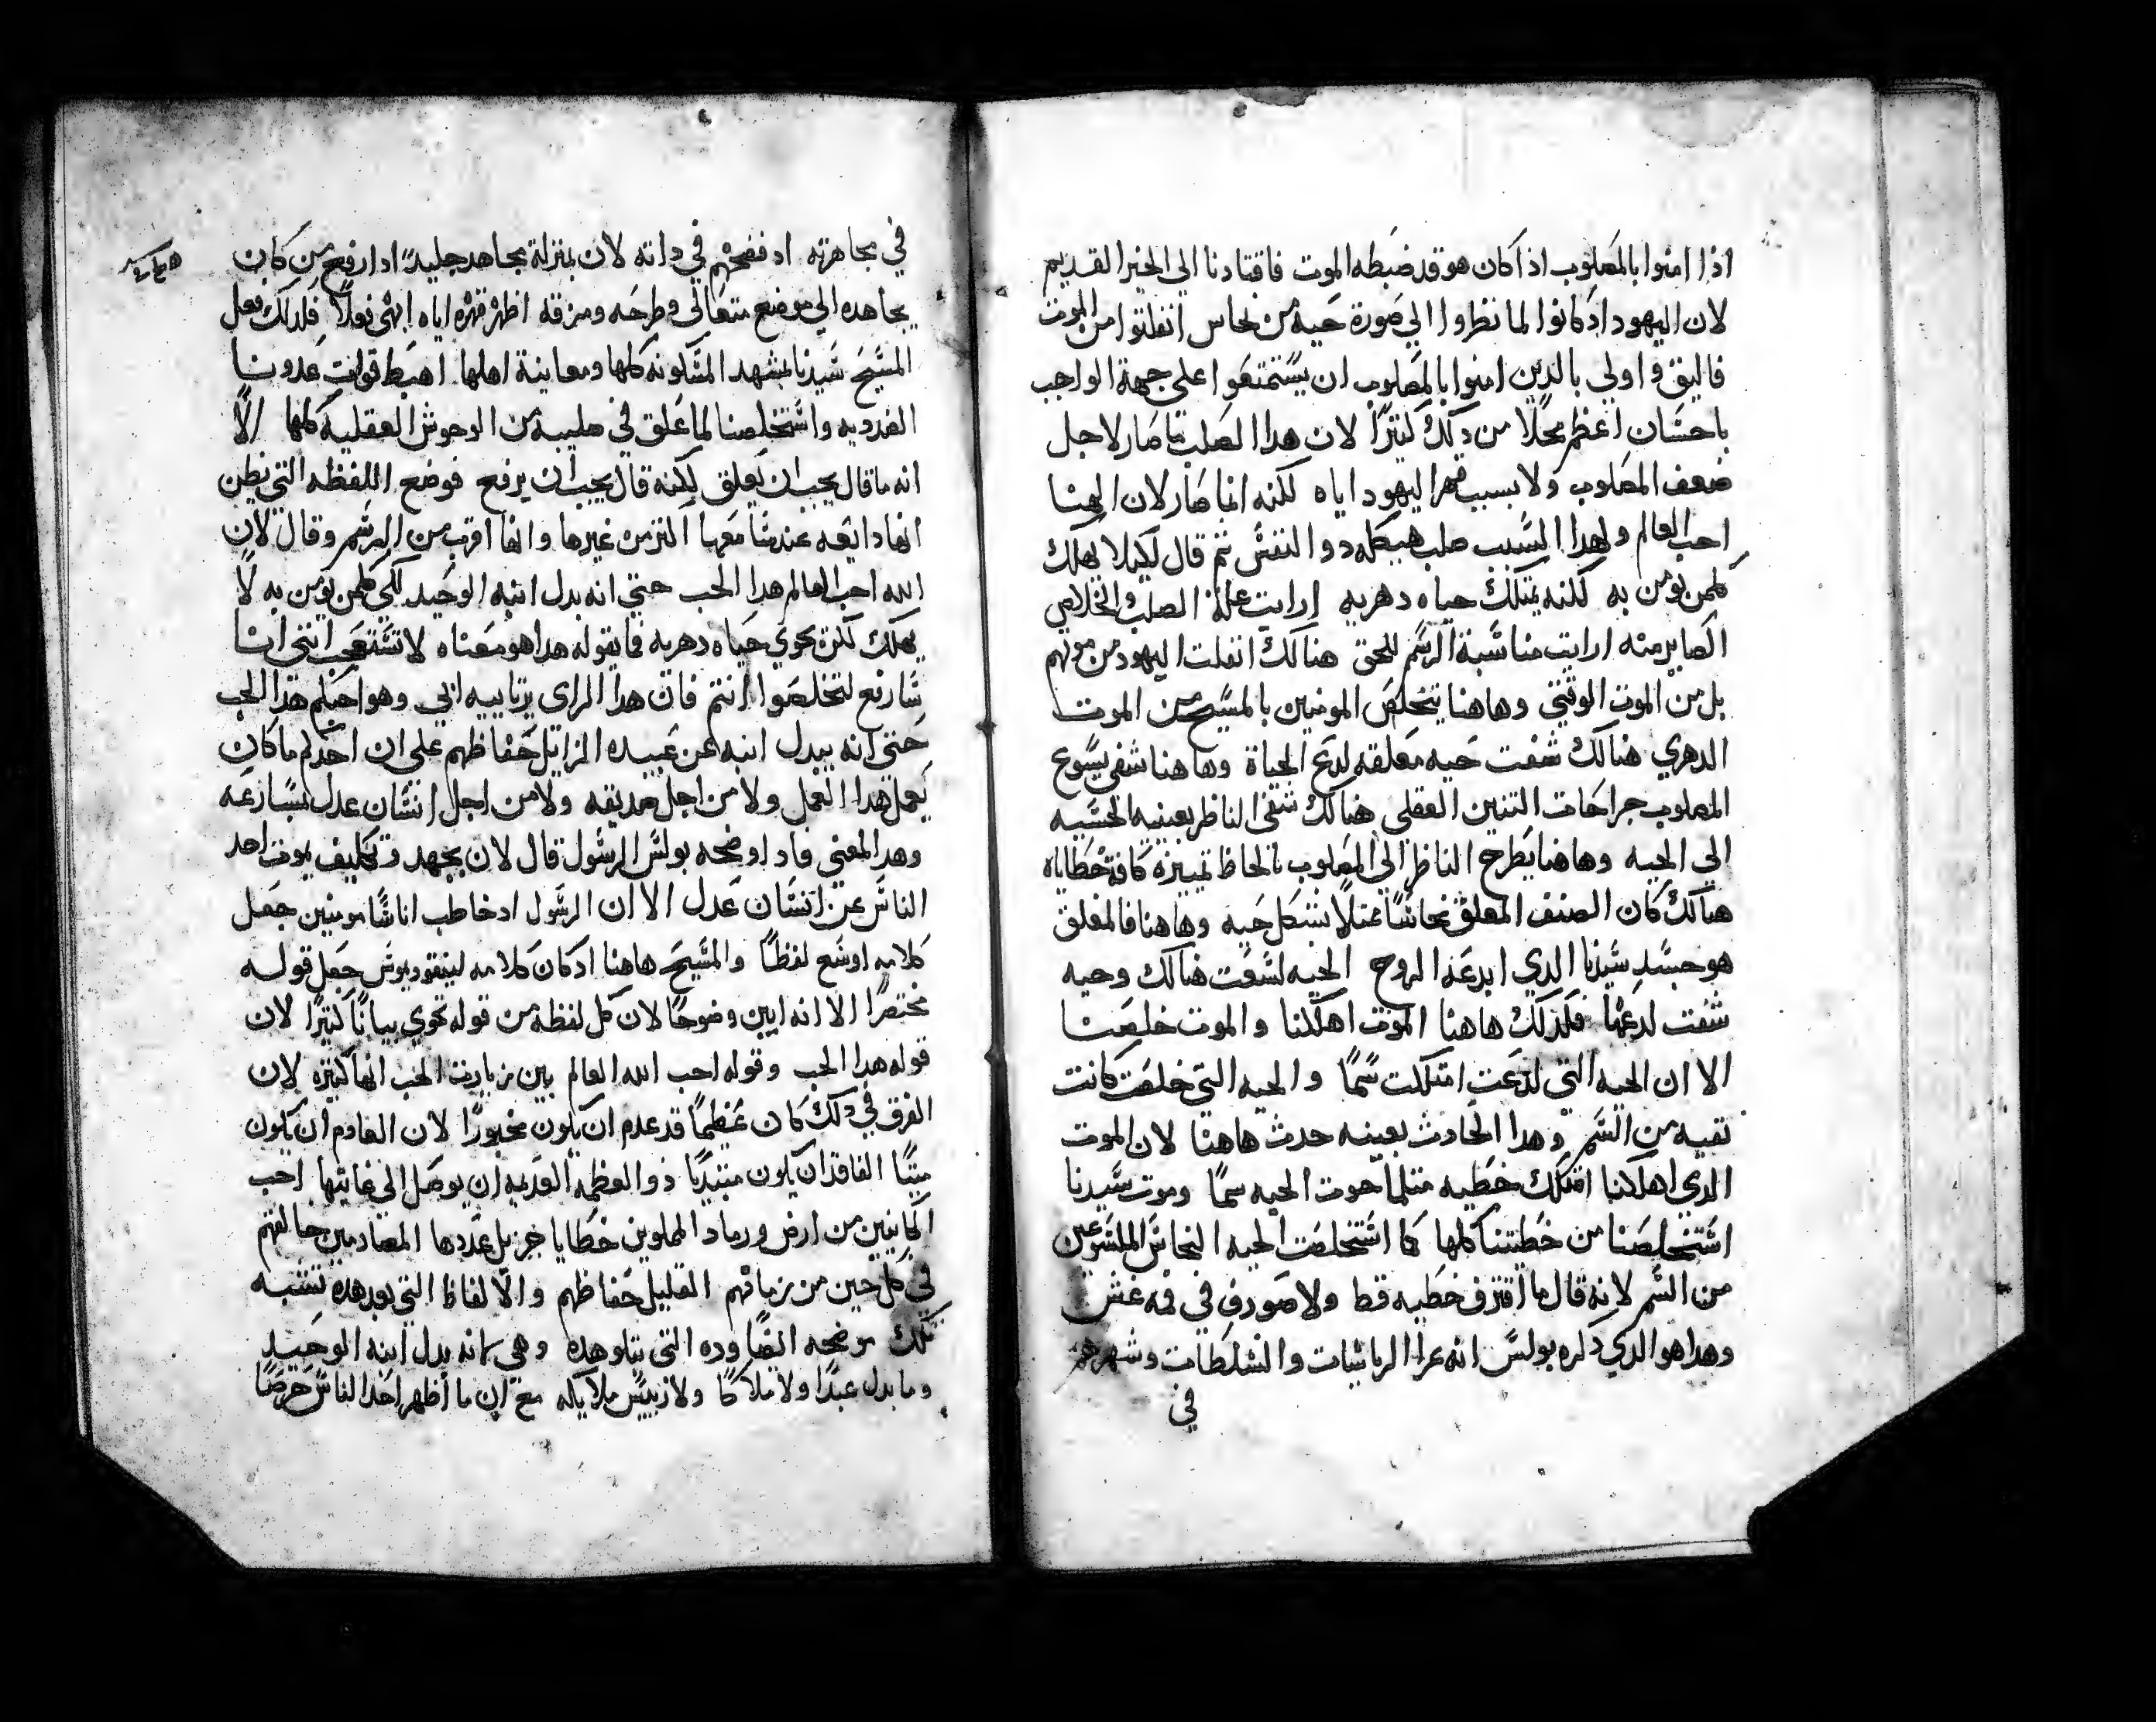 اذا امنوا بالمصلوب اذا كان هو قد ضبطه الموت فاقتادنا الى الخبر القديم
لان اليهود اذ كانوا لما نظروا الي صورة حيه من نحاس انفلتوا من الموت
فاليق واولي بالدين امنوا بالمصلوب ان يستمتعوا على جهة الواجب
باحسان اعظم محلا من ذلك كثيرًا لان هدا الصلب ما صار لاجل
ضعف المصلوب ولا بسبب قهر اليهود اياه لكنه انما صار لان الهنا
احب العالم ولهدا السبب صلب هيكله دو النفس ثم قال لكيلا يهلك
كلمن يومن به لكنه يمتلك حياه دهريه ارايت علة الصلب والخلاص
الصاير منه ارايت مناسبة الرسم للحق هنالك انفلت اليهود من موتهم
بل من الموت الوقتي وهاهنا يتخلص المومنين بالمسيح من الموت
الدهري هنالك شفت حيه معلقه لدع الحياة وهاهنا شفى يسوع
المصلوب جراحات التنين العقلي هنالك شفى الناظر بعينيه الحسيه
الى الحيه وهاهنا يطرح الناظر الى المصلوب بالحاظ تمييزه كافة خطاياه
هنالك كان الصنف المعلق نحاسًا ممثلا بشكل حيه وهاهنا فالمعلق
هو جسد سيدنا الدي ابدعه الروح الحيه لسعت هنالك وحيه
شفت لدعتها فكذلك هاهنا الموت اهلكنا والموت خلصنا
الا ان الحيه التي لدعت امتلكت سمًا والحيه التي خلصت كانت
نقيه من السم وهدا الحادث بعينه حدث هاهنا لان الموت
الدي اهلكنا امتلك خطيه مثلما حوت الحيه سمًا وموت سيدنا
استخلصنا من خطيتنا كلها كما استخلصت الحيه النحاس الملسوعين
من السم لانه قال ما اقترف خطيه قط ولا صودف في فمه غش
وهدا هو الدي ذكره بولس انه عرا الرياسات والسلطات وشهرهم
في
في مجاهرته اد فضحهم في داته لان بمنزلة مجاهد جليد ادا رفع من كان
يجاهده الي موضع متعالي وطرحه ومزقه اظهر قهره اياه ابهى فعلا فلدلك فعل
المسيح سيدنا بمشهد المسكونه كلها ومعاينة اهلها اهبط قوات عدونا
الضدديه واستخلصنا لما علق في صليبه من الوحوش العقليه كلها الا
انه ما قال يجب ان يعلق لكنه قال يجب ان يرفع فوضع اللفظه التي يظن
انها دايعه عند سامعها اكثر من غيرها وانها اقرب من الرسم وقال لان
الله احب العالم هدا الحب حتى انه بدل ابنه الوحيد لكي كلمن يومن به لا
يهلك لكن يحوي حياه دهريه فما يقوله هدا هو معناه لا تستعجب انني انا
سارفع لتخلصوا انتم فان هدا الراى يرتاييه ابي وهو احبكم هدا الحب
حتى انه يبدل ابنه عن عبيده الزايل حفاظهم على ان احدكم ما كان
يعمل هدا العمل ولا من اجل صديقه ولا من اجل انسان عدل مسارعه
وهدا المعني فاد اوضحه بولس الرسول قال لان بجهد وتكليف يموت احد
الناس عن انسان عدل الا ان الرسول اد خاطب اناسًا مومنين جعل
كلامه اوسع لفظًا والمسيح هاهنا ادكان كلامه لنيقوديموس جعل قوله
مختصرا الا انه ابين وضوحًا لان كل لفظه من قوله تحوي بيانًا كثيرًا لان
قوله هدا الحب وقوله احب الله العالم يبين زيادة الحب انها كثيره لان
الفرق في ذلك كان عظيمًا قد عدم ان يكون مخبورًا لان العادم ان يكون
ميتًا الفاقد ان يكون مبتديًا ذو العظمه العديمه ان يوصل الي غايتها احب
الكاينين من ارض ورماد المملوين خطايا جزيل عددها المصادمين خالقهم
في كل حين من زمانهم القليل حفاظهم والالفاظ التي بعد هده تشبه
تلك موضحه التي تتلو هده وهي انه بدل ابنه الوحيد
وما بدل عبدًا ولا ملاكًا ولا رييس ملايكه مع ان ما اظهر احد الناس حرصًا